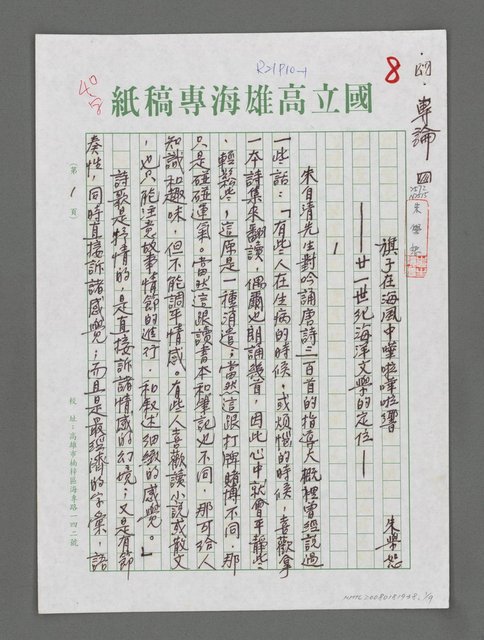 R21P10-1
8
40字
國立高雄海專稿紙
·四·專論 四
朱學恕
旗子在海風中嘩啦嘩啦響
——廿一世紀海洋文學的定位——
朱學恕
1
朱自清先生對吟誦唐詩三百首的指導大概裡曾經說過
一些話:「有些人在生病的時候,或煩惱的時候,喜歡拿
一本詩集來翻讀,偶爾也朗誦幾首,因此心中就會平靜些
,輕鬆些,這原是一種消遣;當然這跟打牌賭博不同,那
只是碰碰運氣。當然這跟讀書本和筆記也不同,那可給人
知識和趣味,但不能調平情感。有些人喜歡讀小說或散文
,也只能注意故事情節的進行,和敘述細緻的感覺。」
詩歌是抒情的,是直接訴諸情感的幻境;又是有節
奏性,同時直接訴諸感覺;而且是最經濟的字彙,語
(第 1 頁)
校 址:高雄市楠梓區海專路一四二號
NMTL20080181938. 1/9